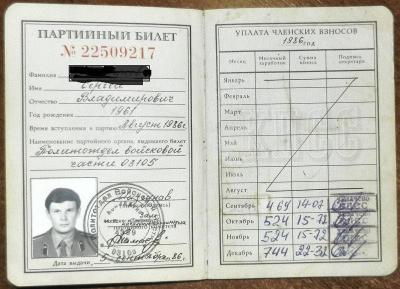 ПАРТИЙНЫЙ БИЛЕТ
№ 22509217
Фамилия
Имя Сергей
Отчество Владимирович
Год рождения 1961
Время вступления в партию Август 1986г.
Наименование партийного органа, выдавшего билет
Политотдел войсковой
части 03105
Дата выдачи 86 г.
УПЛАТА ЧЛЕНСКИХ ВЗНОСОВ
1986 год
Месяц Месячный заработок Сумма взноса Подпись секретаря
Январь
Февраль
Март
Апрель
Май
Июнь
Июль
Август
Сентябрь 469 14-07
Октябрь 524 15-72
Ноябрь 524 15-72
Декабрь 744 22-32